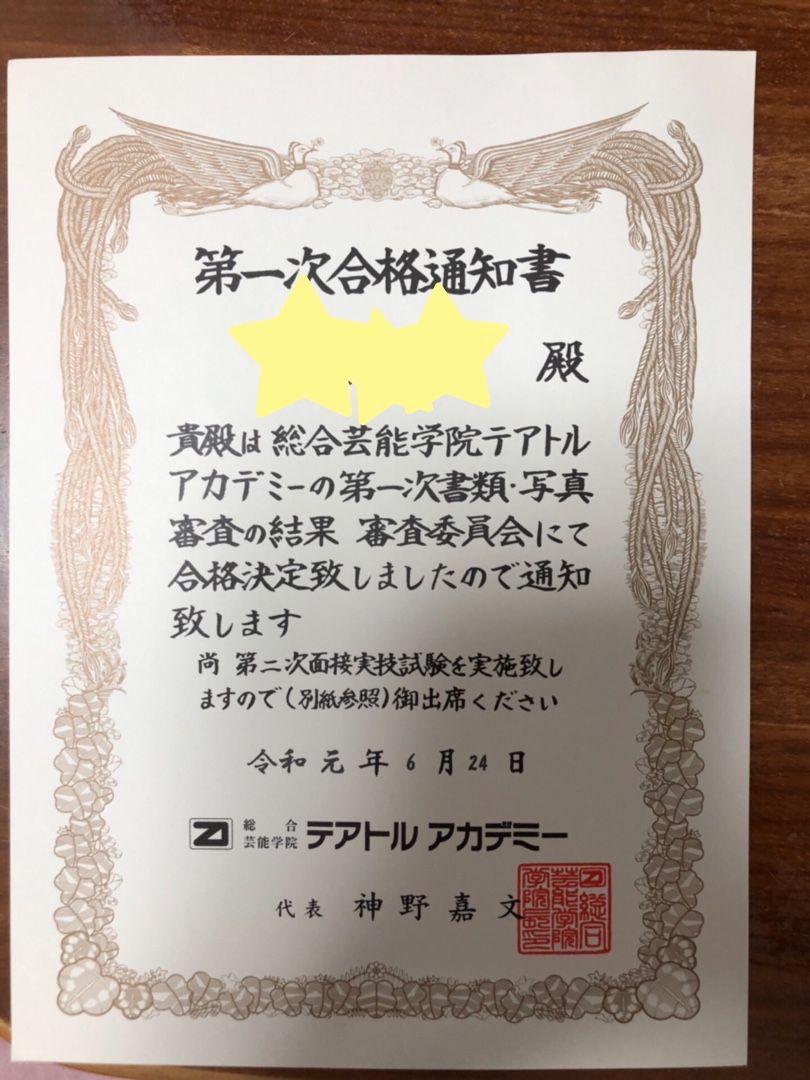 第一次合格通知書
殿
貴殿は 総合芸能学院テアトル
アカデミーの第一次書類・写真
審査の結果 審査委員会にて
合格決定致しましたので通知
致します
尚 第二次面接実技試験を実施致し
ますので(別紙参照)御出席ください
令和元年6月24日
総合
芸能学院 テアトル アカデミー
代表 神野嘉文